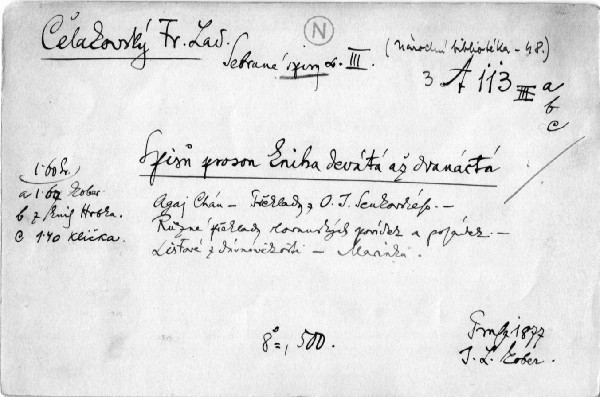 Čelakovský Fr. Lad.
N
Sebrané spisy d. III.
(Národní bibliotéka - 48.)
3 A 113 III a
b
c
Spisů prosou Kniha devátá až dvanáctá
1·60 kr.
a 1·60 Kober
b z knih Hrbka.
c 1·40 Klička.
Agaj Chán — Překlady z O. I. Senkovského. —
Různé překlady slovanských povídek a pojedn. —
Listové z dávnověkosti — Marinka.
8°, 500.
Praha 1877
I. L. Kober.